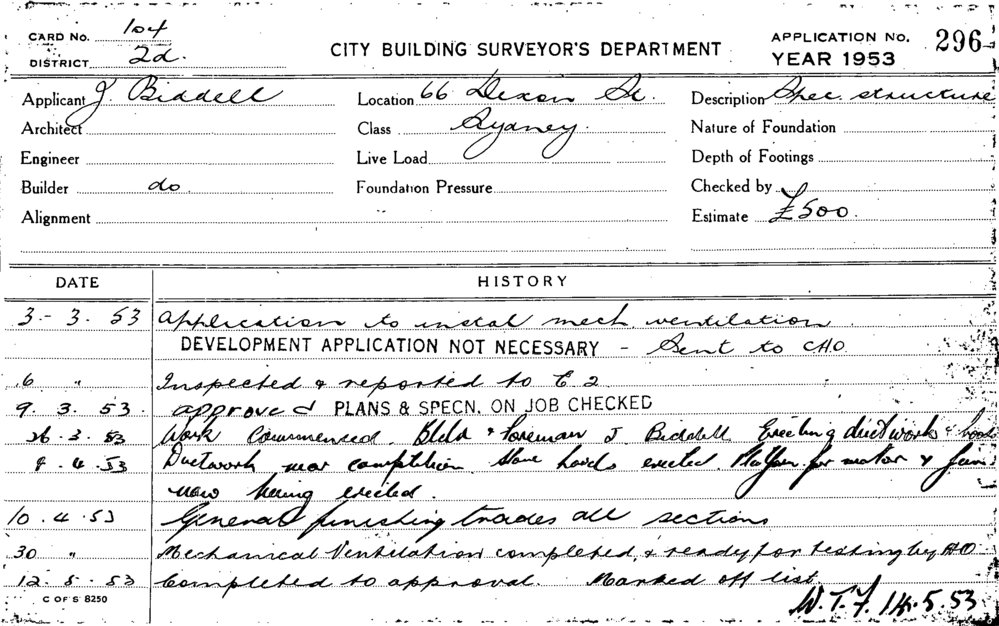 CARD No. 104
DISTRICT 2d.
CITY BUILDING SURVEYOR'S DEPARTMENT
APPLICATION No. 296
YEAR 1953
Applicant J Biddell Location 66 Dixon St. Description Spec. structure
Architect Class Sydney. Nature of Foundation
Engineer Live Load Depth of Footings
Builder do Foundation Pressure Checked by
Alignment Estimate £500.
DATE HISTORY
3 - 3. 53 Application to instal mech. ventilation
DEVELOPMENT APPLICATION NOT NECESSARY - Sent to CHO.
6 " Inspected & reported to C. 2
9. 3. 53. approved PLANS & SPECN. ON JOB CHECKED
26. 3. 53 Work Commenced. Bldr & Foreman J. Biddell Erecting ductwork & hood
9. 4. 53 Ductwork near completion Stove hoods erected. Platform for motor & fan
now being erected.
10. 4. 53 General finishing trades all sections
30 " Mechanical Ventilation completed, & ready for testing by HO
12. 5. 53 Completed to approval. Marked off list
C OF S 8250
W.T.F. 14.5.53.